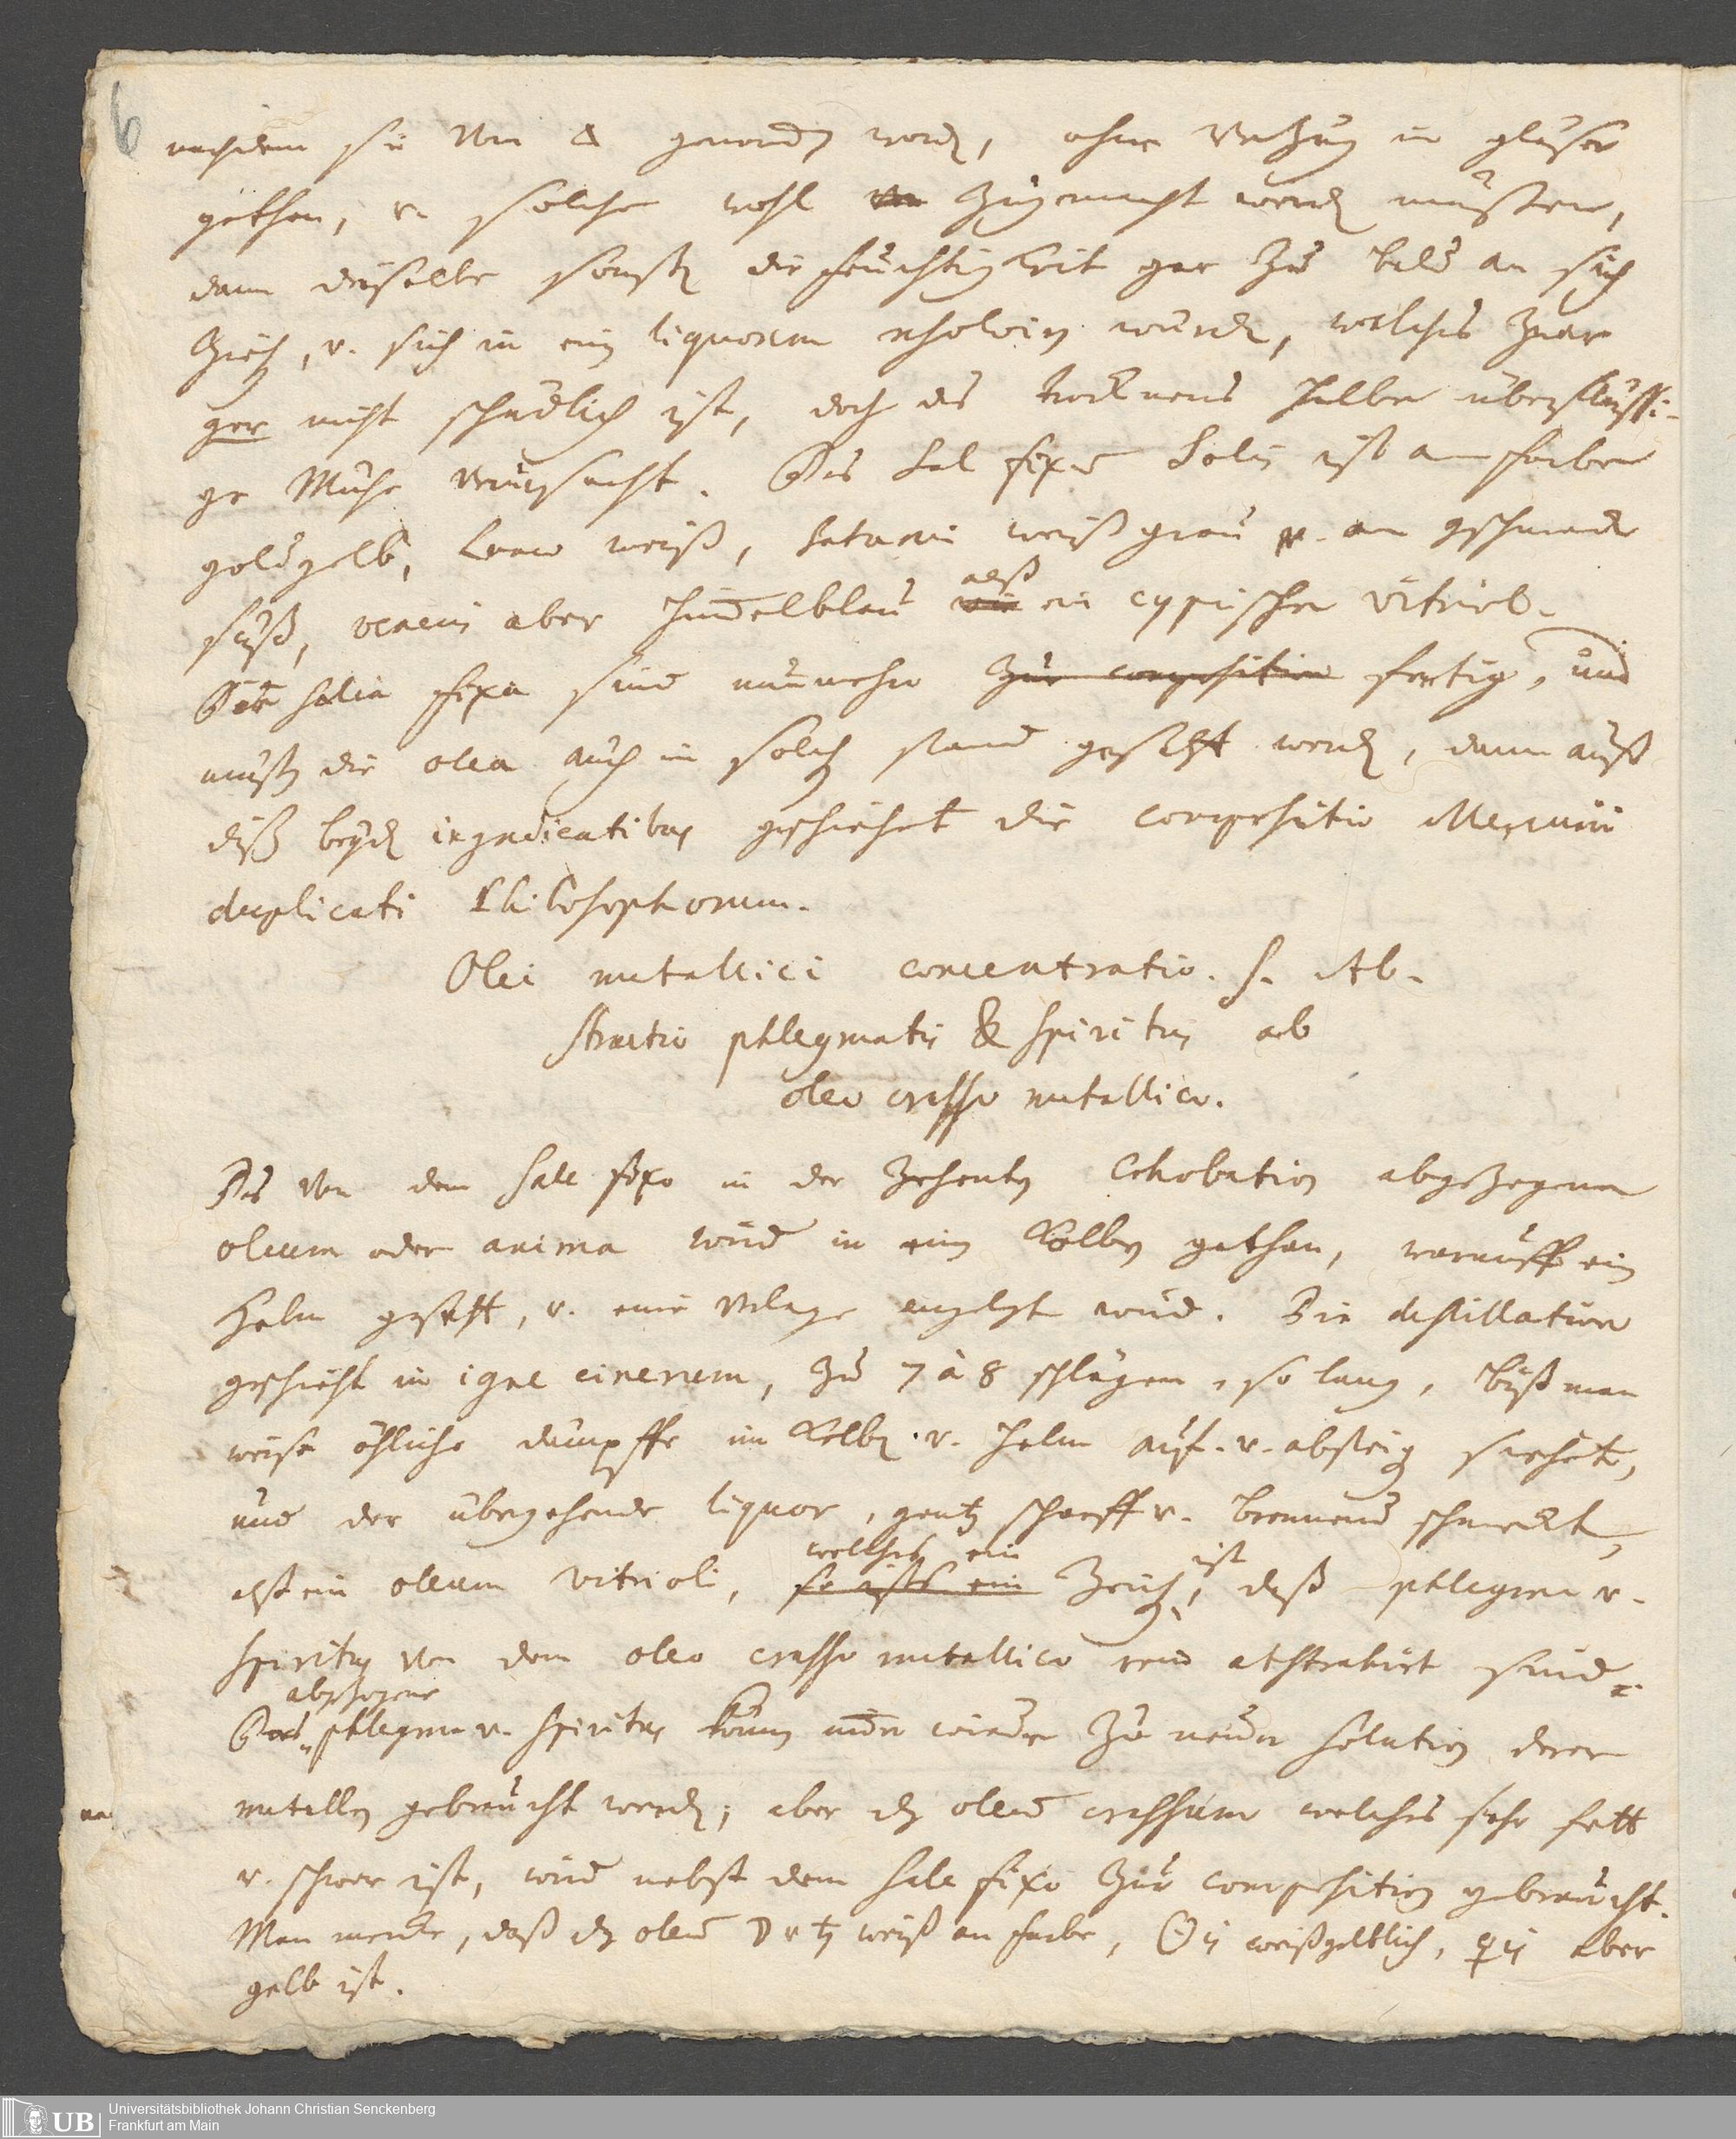 6
nachdem sie von 🜂 genomen word, ohne Verzug in gläser
gethan, v. solche wohl zugemacht werden müßen,
dann dieselbe sonsten die feuchtigkeit gar zu bald an sich
ziehen, v. sich in ein liquorem resolvieren würden, welches zwar
gar nicht schädlich ist, doch des trocknens halber überflüssi-
ge Mühe verursacht. Das Sal fixum Solis ist an farben
goldgelb, Lunae weiß, Saturni weißgrau v. am gschmack
süß, veneris aber himmelblau alß ein cyprischer vitriol.
Die Salia fixa sind nunmehr zur composition fertig, und
müßen die olea auch in solchen stand gesetzt werden, dann auß
dißen beyden ingredientibus geschiehet die compositio Mercurii
duplicati Philosophorum.
Olei metallici concentratio. s. Ab-
stractio phlegmatis & spiritus ab
oleo crasso metallico.
Das von dem Sale fixo in der zehenten Cohobation abgezogene
oleum oder anima wird in ein Kolben gethan, worauff ein
Helm gesetzt, v. eine Vorlage angelegt wird. Die destillation
geschieht in igne cinerum, zu 7 à 8 schlägen, so lang, biß man
weise öhliche dämpffe im Kolben v. Helm auf- v. absteigen siehet,
und der übergehende liquor, gantz scharff v. brennend schmeckt,
alß ein oleum vitrioli, welches ein
so ists ein Zeichen ist, daß phlegma v.
Spiritus von dem oleo crasso metallico rein abstrahirt sind.
abgezogene
Das phlegma v. Spiritus kann nun wieder zu neuer Solution derer
metallen gebraucht werden; aber das oleum crassum welches sehr fett
v. schwer ist, wird nebst dem Sale fixo zur composition gebraucht.
Man mercke, daß das oleum ☽ v ♄ weiß an farbe, ☉is weißgelblich, ♀is aber
gelb ist.
UB
Universitätsbibliothek Johann Christian Senckenberg
Frankfurt am Main